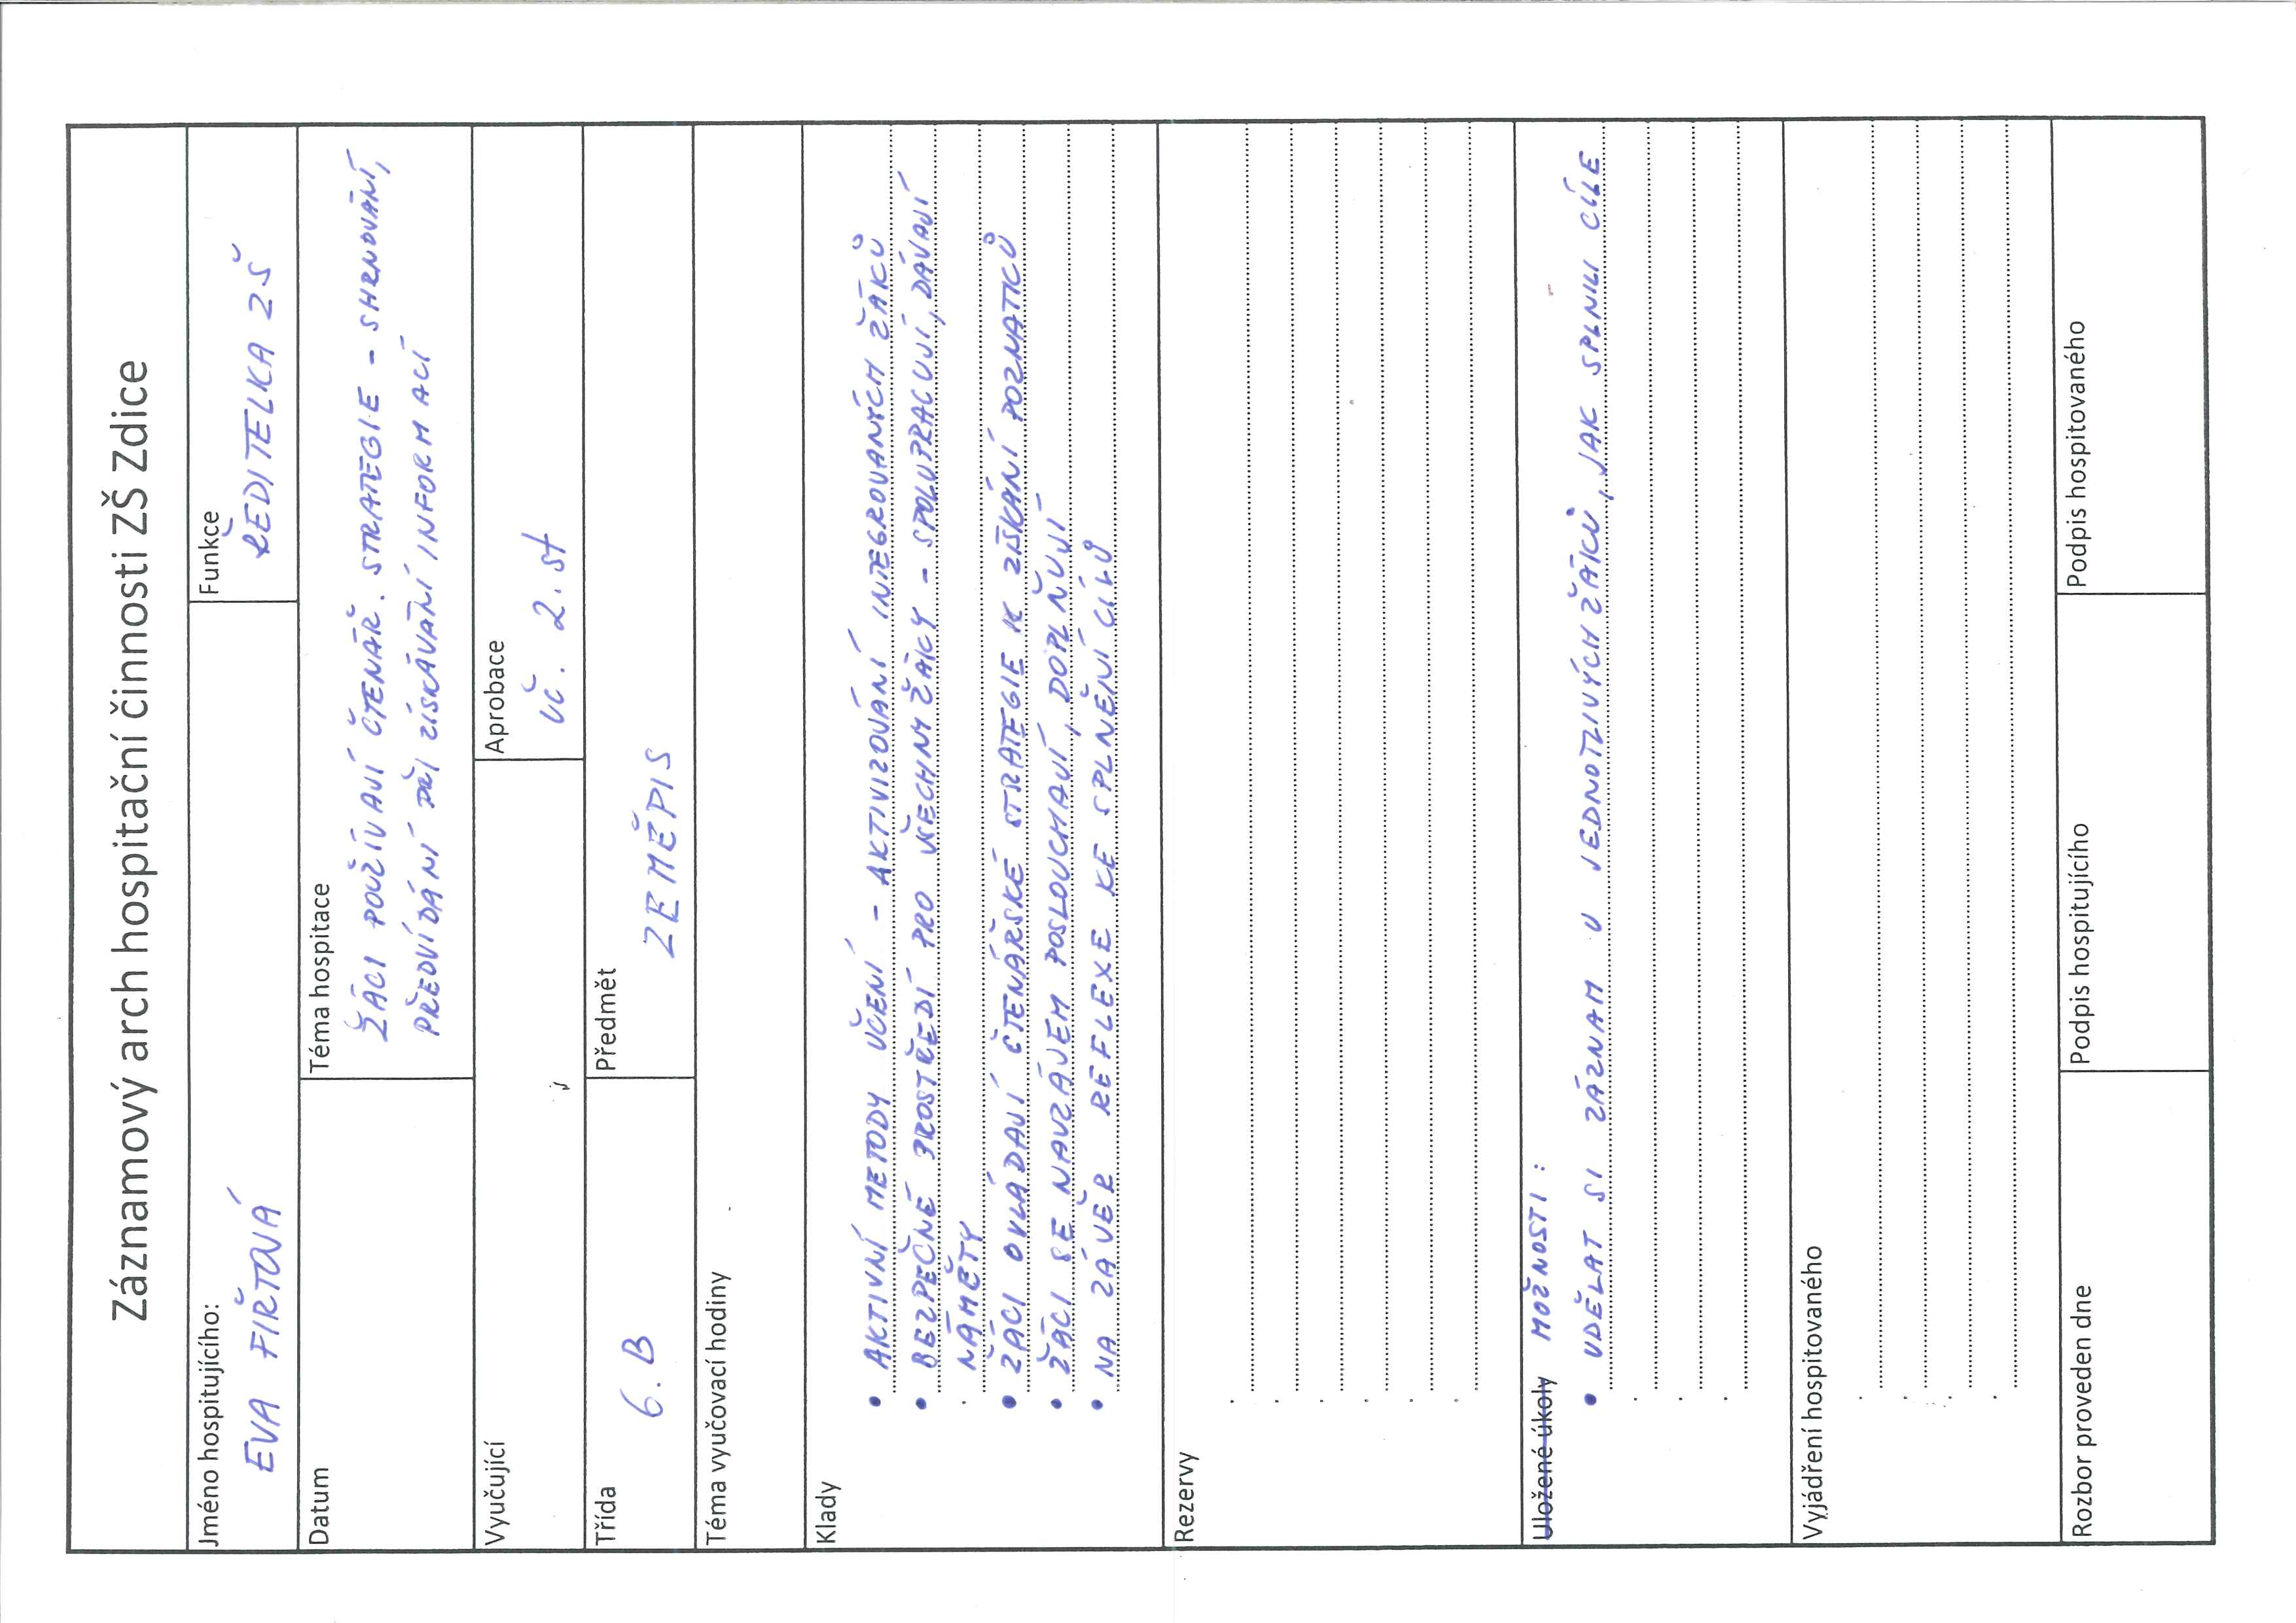 Záznamový arch hospitační činnosti ZŠ Zdice
Jméno hospitujícího:
EVA FIŘTOVÁ
Funkce
ŘEDITELKA ZŠ
Datum
Téma hospitace
ŽÁCI POUŽÍVAJÍ ČTENÁŘ. STRATEGIE - SHRNOVÁNÍ,
PŘEDVÍDÁNÍ PŘI ZÍSKÁVÁNÍ INFORMACÍ
Vyučující
Aprobace
UČ. 2. st
Třída
6. B
Předmět
ZEMĚPIS
Téma vyučovací hodiny
Klady
• AKTIVNÍ METODY UČENÍ - AKTIVIZOVÁNÍ INTEGROVANÝCH ŽÁKŮ
• BEZPEČNÉ PROSTŘEDÍ PRO VŠECHNY ŽÁKY - SPOLUPRACUJÍ, DÁVAJÍ
NÁMĚTY
• ŽÁCI OVLÁDAJÍ ČTENÁŘSKÉ STRATEGIE K ZÍSKÁNÍ POZNATKŮ
• ŽÁCI SE NAVZÁJEM POSLOUCHAJÍ, DOPLŇUJÍ
• NA ZÁVĚR REFLEXE KE SPLNĚNÍ CÍLŮ
Rezervy
Uložené úkoly MOŽNOSTI:
• UDĚLAT SI ZÁZNAM U JEDNOTLIVÝCH ŽÁKŮ, JAK SPLNILI CÍLE
Vyjádření hospitovaného
Rozbor proveden dne
Podpis hospitujícího
Podpis hospitovaného